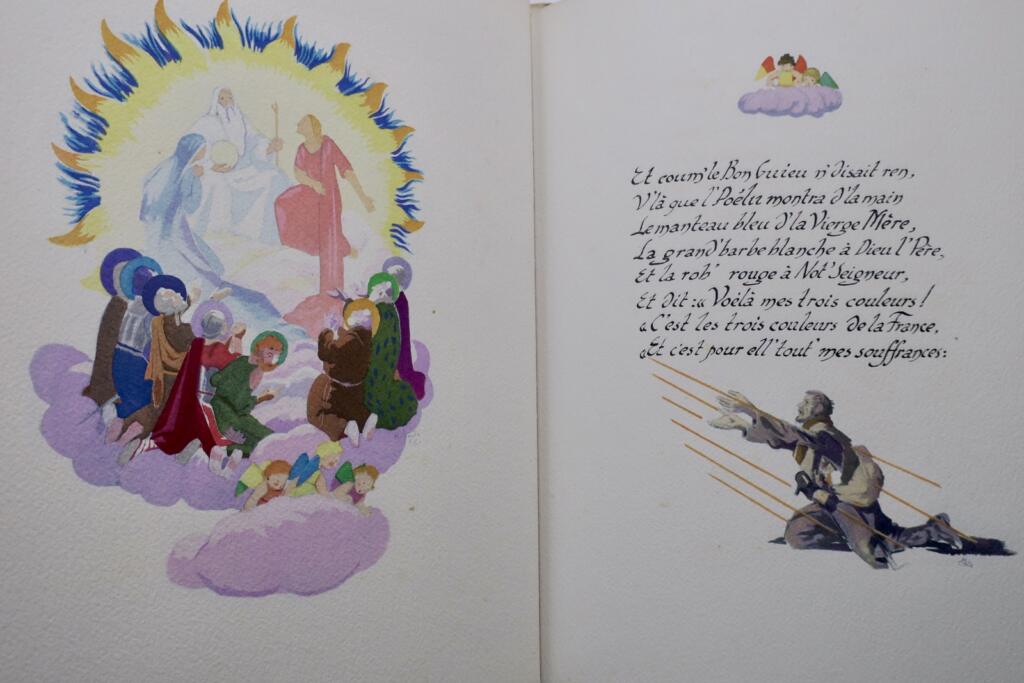 Et coum' le Bon Guieu n'disait ren,
V'là que l'Poélu montra d'la main
Le manteau bleu d'la Vierge Mère,
La grand' barbe blanche à Dieu l'Père,
Et la rob' rouge à Not' Seigneur,
Et dit : « Voélà mes trois couleurs !
« C'est les trois couleurs de la France,
« Et c'est pour ell' tout' mes souffrances :